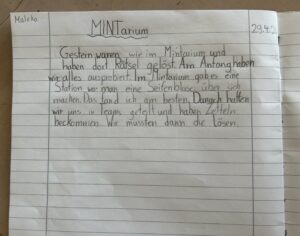 Maleko
MINTarium
29.4.2
Gestern waren wie im Mintarium und
haben dort Rätsel gelöst. Am Anfang haben
wir alles ausprobiert. Im Mintarium gab es eine
Station wo man eine Seifenblase über sich
machen. Das fand ich am besten. Danach hatten
wir uns in Teams geteilt und haben Zetteln
beckommen. Wir mussten dann die lösen.